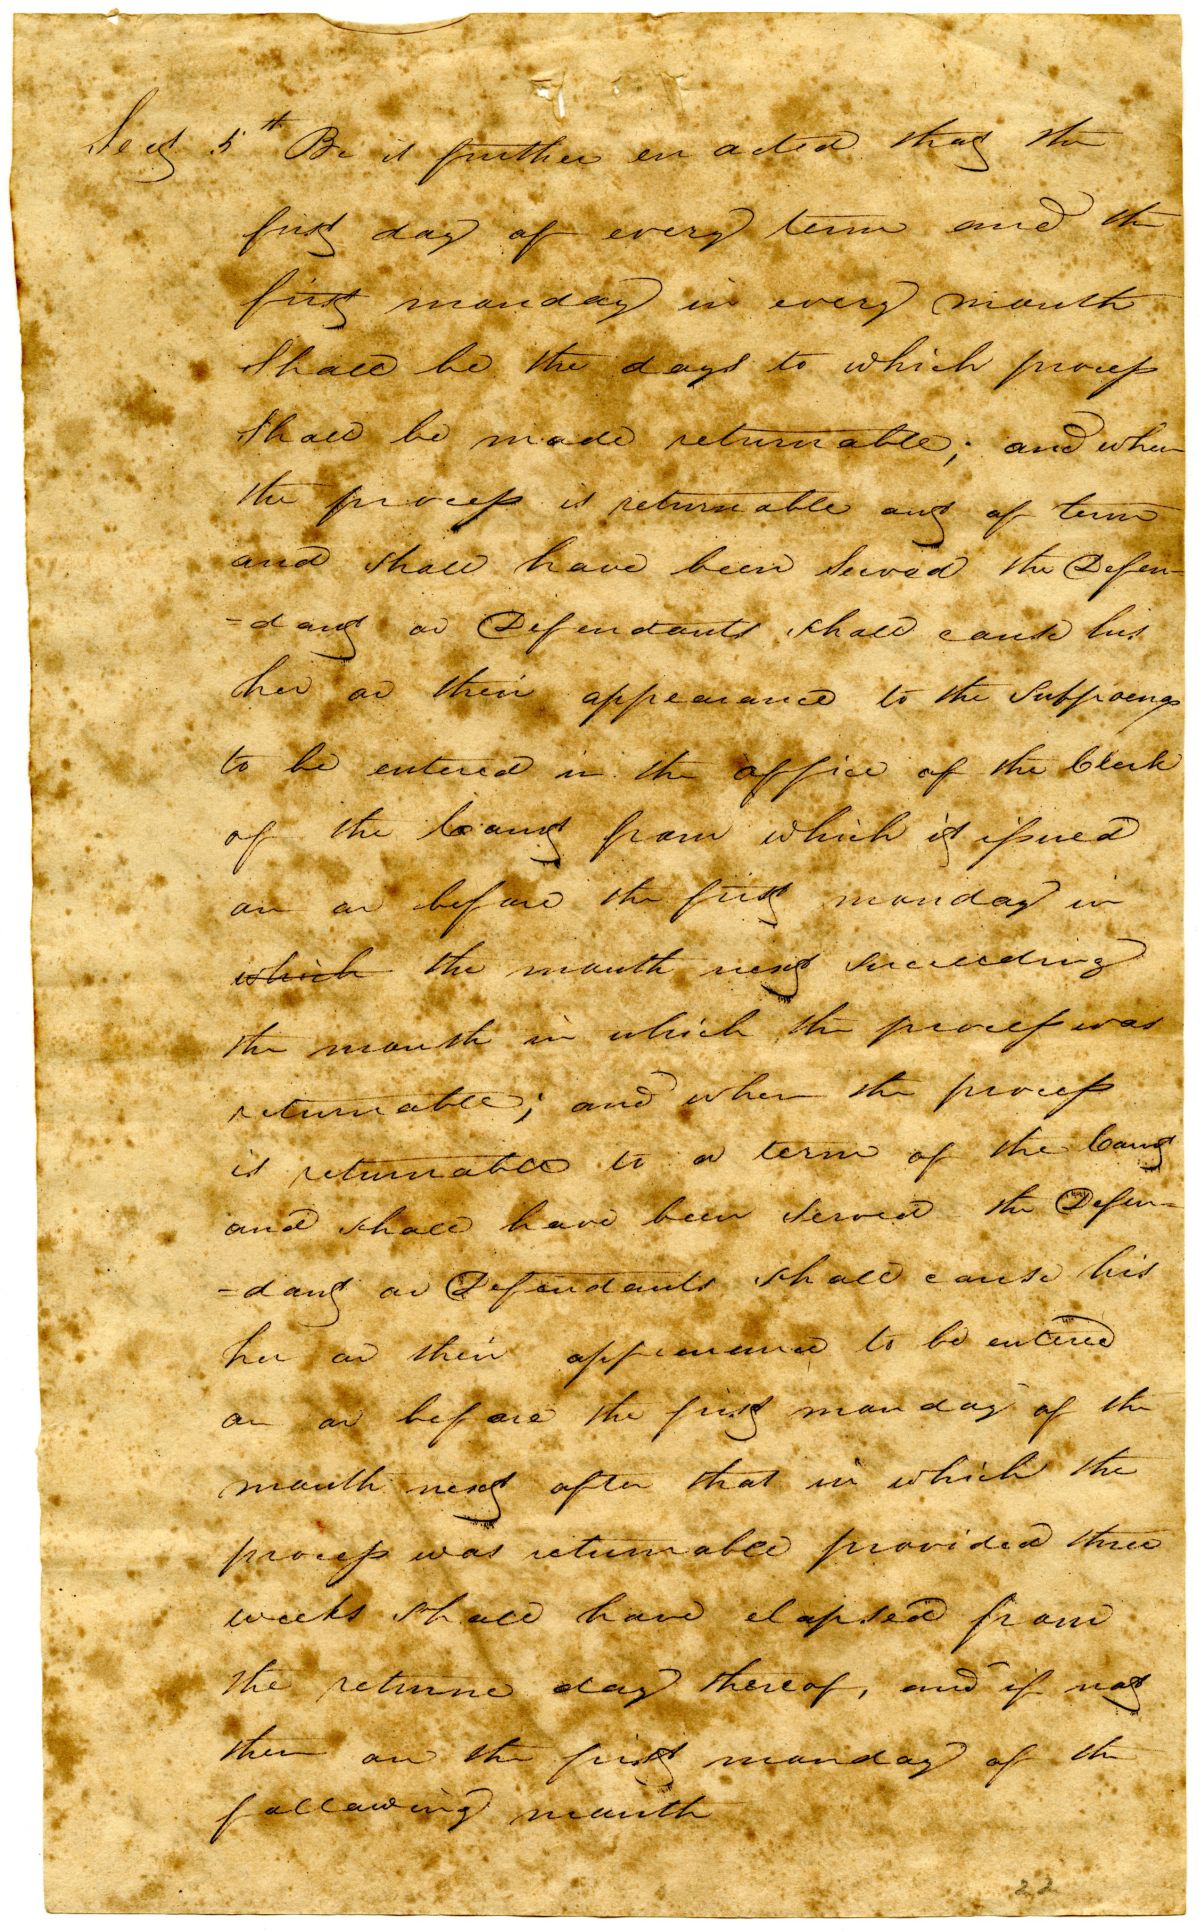 Sect 5th Be it further enacted that the
first day of every term and the
first monday in every month
shall be the days to which process
shall be made returnable; and when
the process is returnable out of term
and shall have been served the Defen-
-dant or Defendants shall cause his
her or their appearance to the Subpoena
to be entered in the office of the Clerk
of the Court from which it issued
on or before the first monday in
which the month next succeeding
the month in which the process was
returnable; and when the process
is returnable to a term of the Court
and shall have been served the Defen-
-dant or Defendants shall cause his
her or their appearance to be entered
on or before the first monday of the
month next after that in which the
process was returnable provided three
weeks shall have elapsed from
the returne day thereof, and if not
then on the first monday of the
following month
22